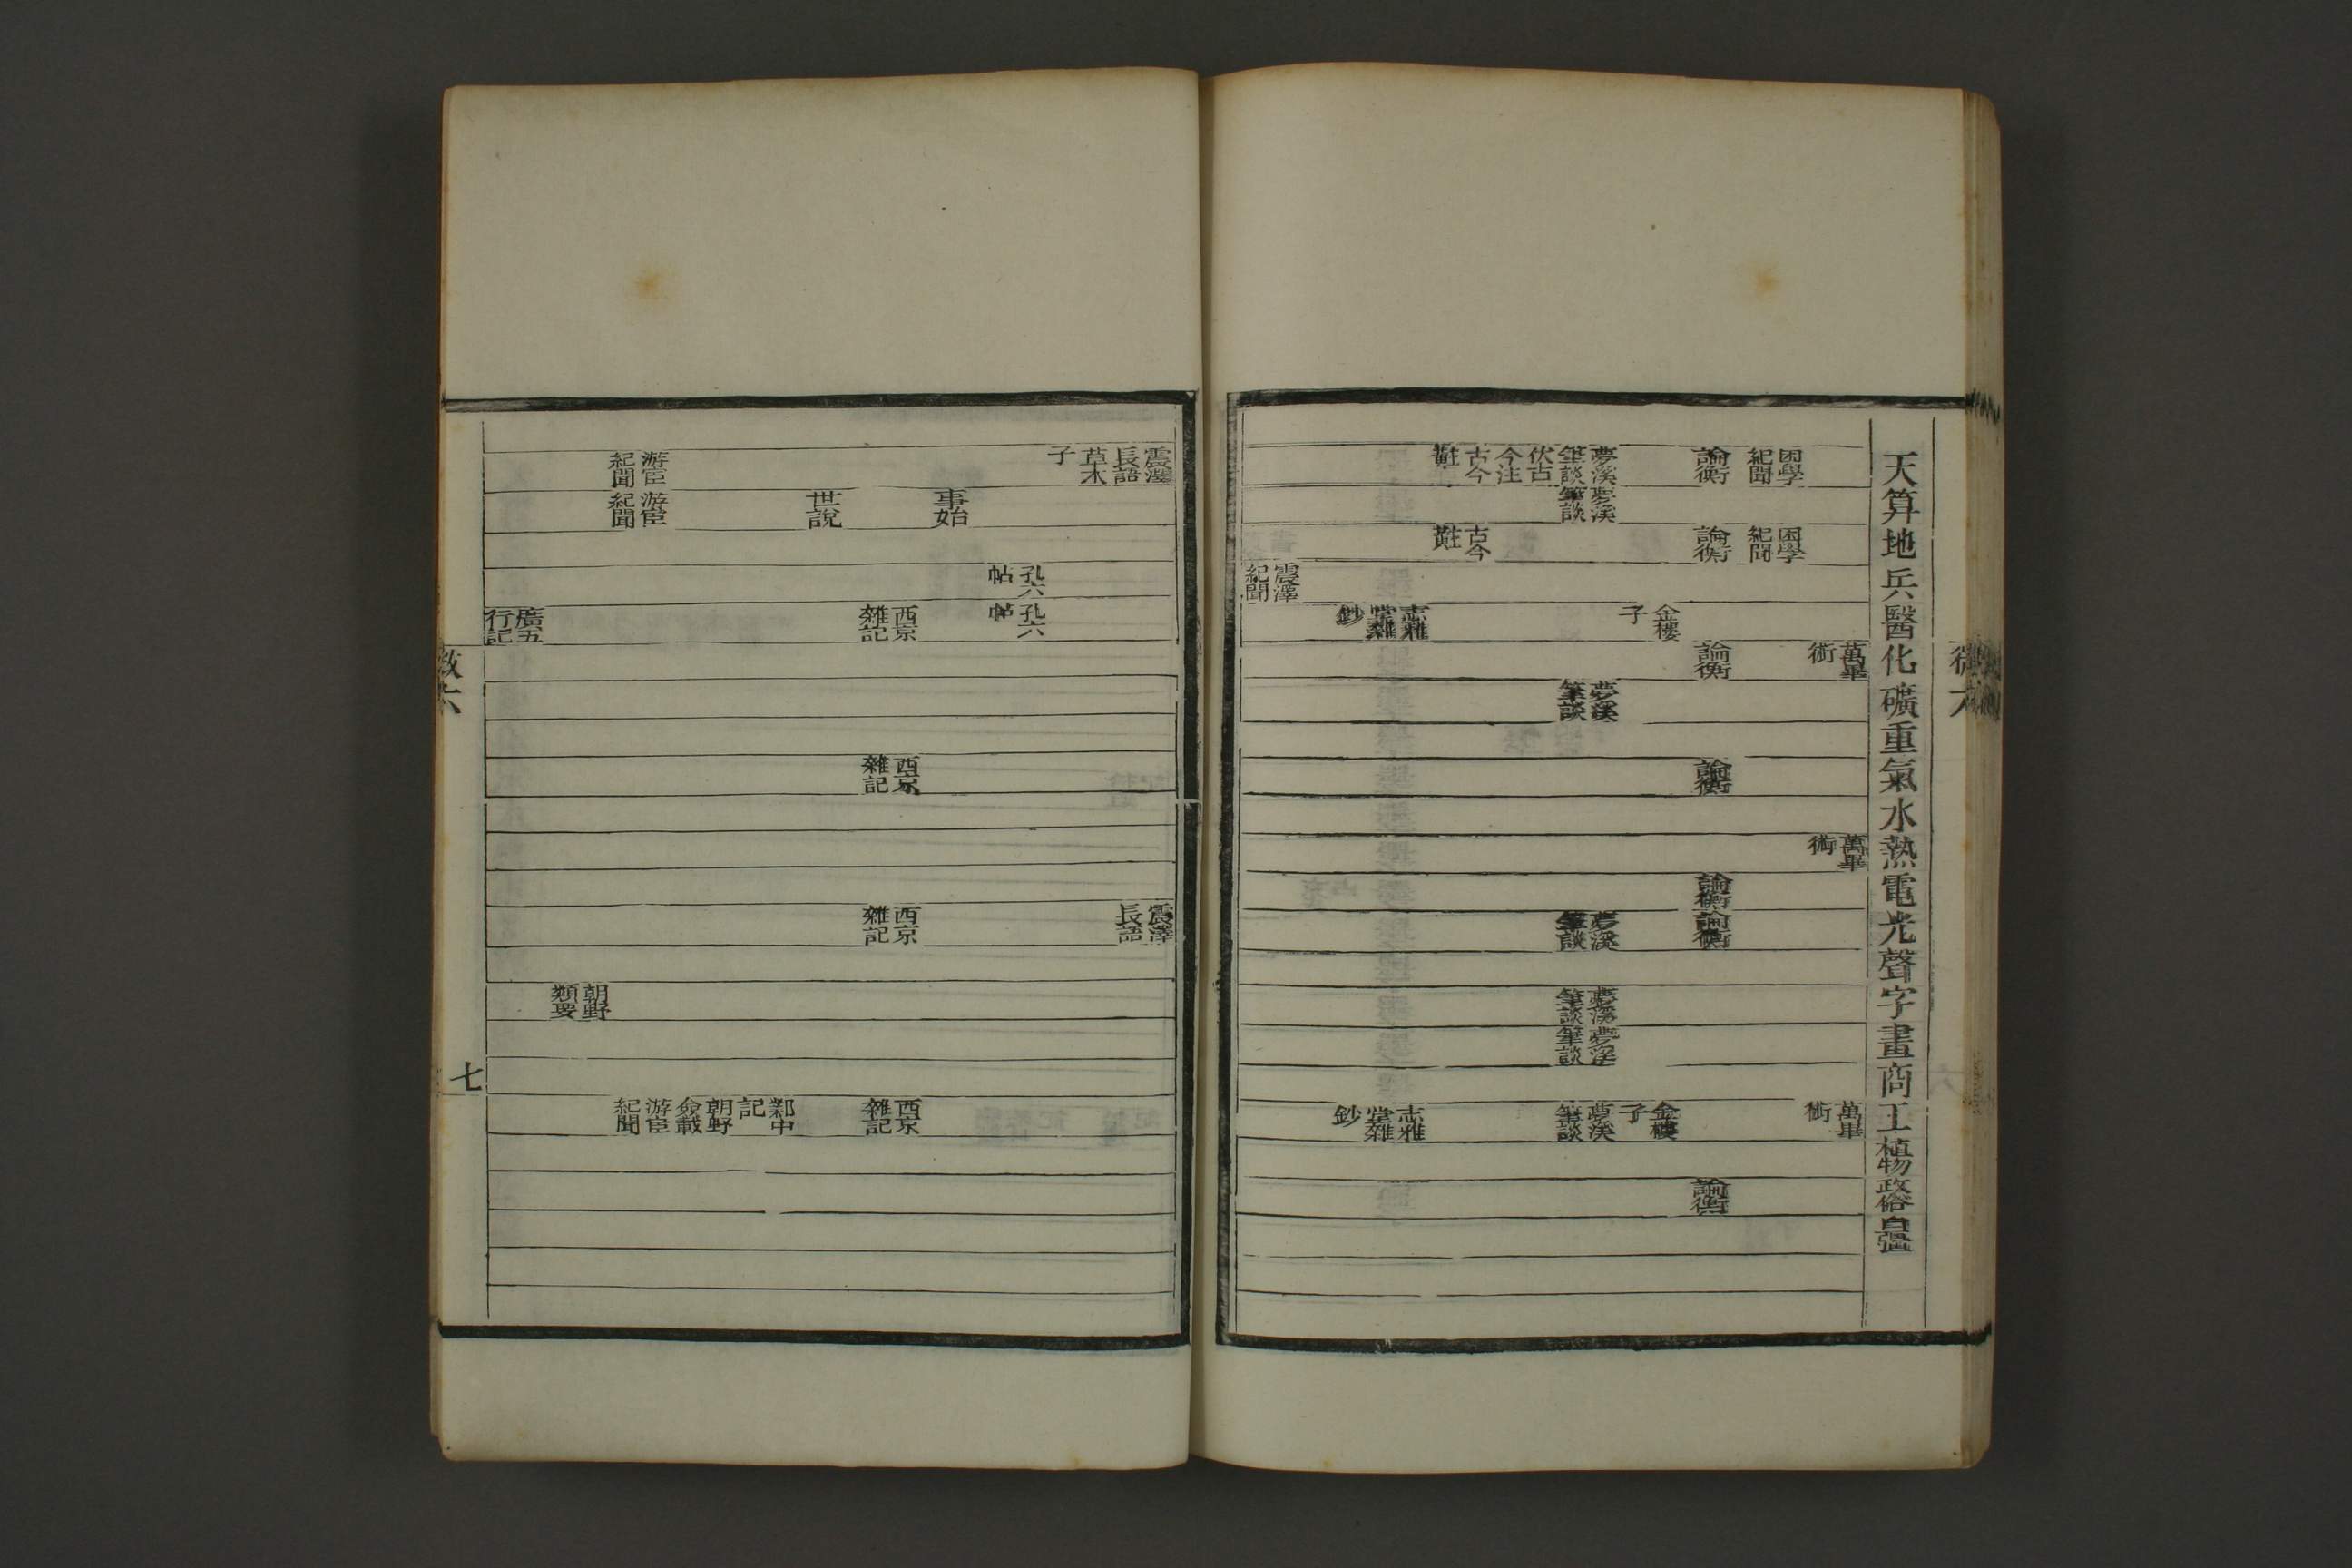 天算地兵醫化礦重氣水熱電光聲字畫商工植物政俗自强
困學紀聞
論衡
夢溪筆談
伏古今注
古今
夢溪筆談
困學紀聞
論衡
古今
震澤紀聞
金樓子
志雅堂雜鈔
萬畢術
論衡
夢溪筆談
論衡
萬畢術
論衡
論衡
夢溪筆談
夢溪筆談
夢溪筆談
萬畢術
金樓子
夢溪筆談
志雅堂雜鈔
論衡
震澤長語
草木子
游宦紀聞
事始
世說
游宦紀聞
孔六帖
孔六帖
西京雜記
廣五行記
西京雜記
震澤長語
西京雜記
朝野類要
西京雜記
鄴中記
朝野僉載
游宦紀聞
七